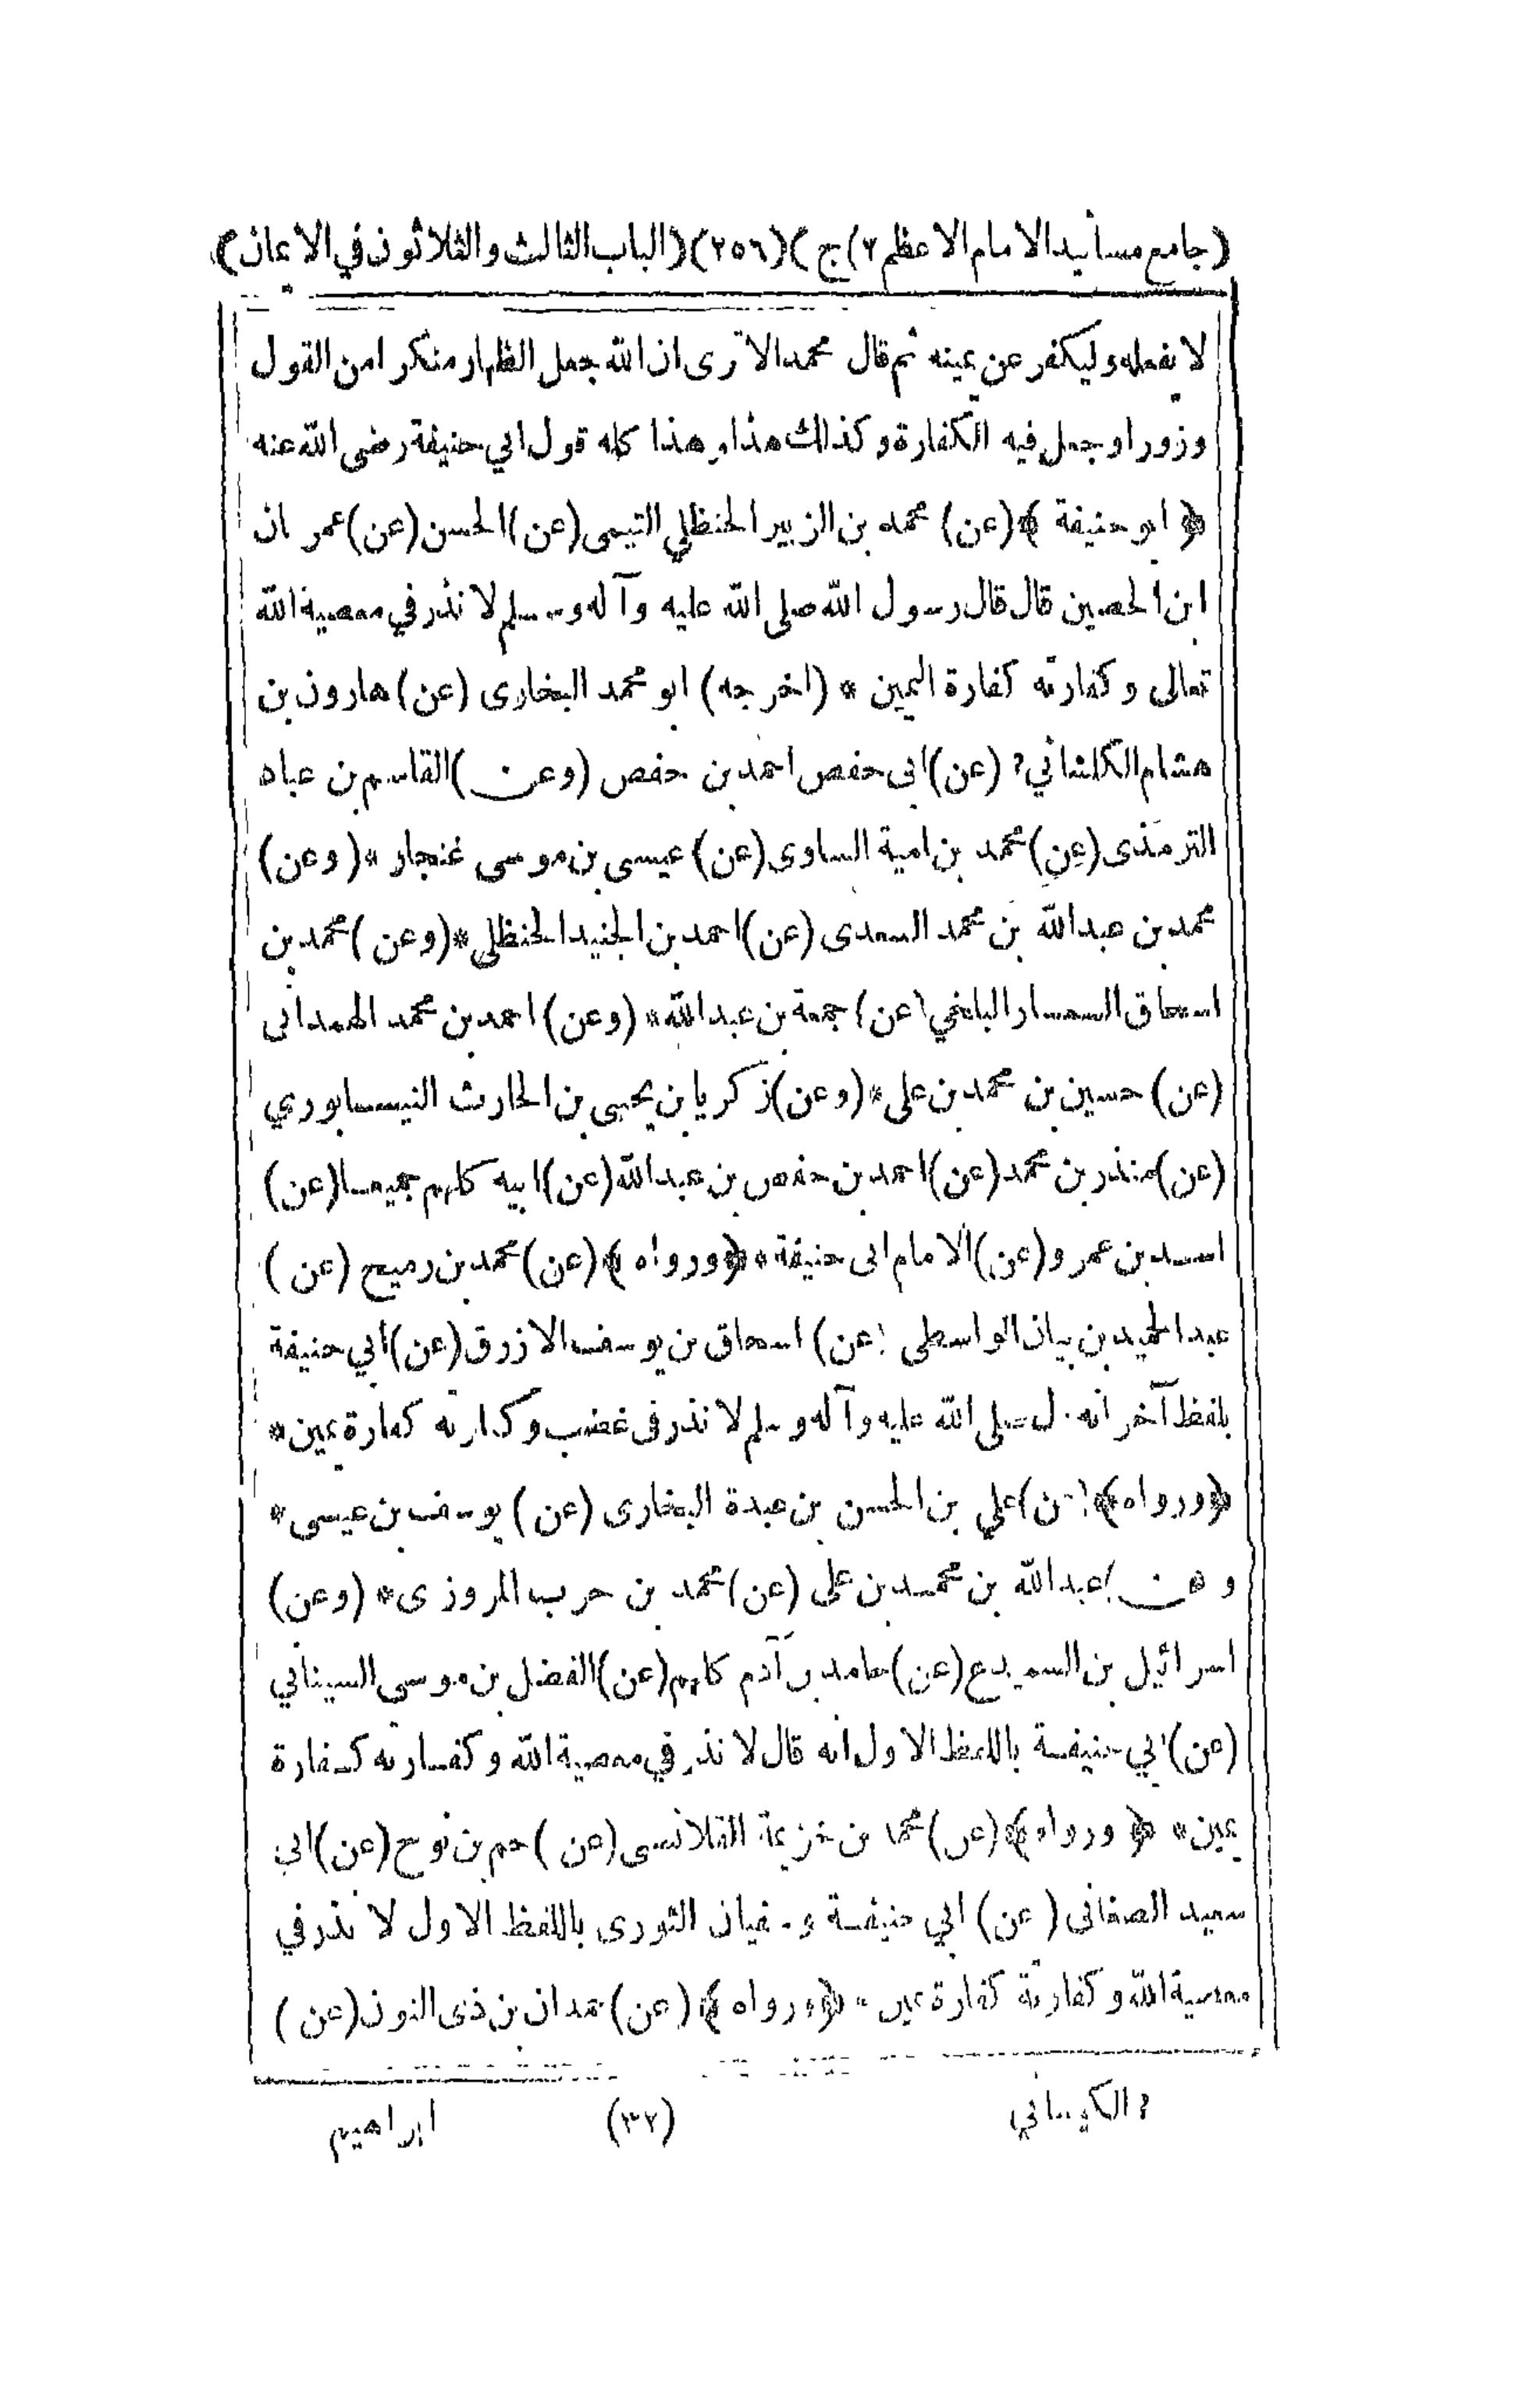 (جامع مسانيد الامام الاعظم ٢) ج) (٢٥٦) (الباب الثالث والثلاثون في الايمان)
لا يفعله وليكفر عن يمينه ثم قال محمد الا ترى ان الله جعل الظهار منكرا من القول
وزورا وجعل فيه الكفارة وكذلك هذا وهذا كله قول ابي حنيفة رضى الله عنه
﴿ ابو حنيفة ﴾ (عن) محمد بن الزبير الحنظلي التيمى (عن) الحسن (عن) عمر ان
ابن الحصين قال قال رسول الله صلى الله عليه وآله وسلم لا نذر في معصية الله
تعالى وكفارته كفارة اليمين * (اخرجه) ابو محمد البخارى (عن) هارون بن
هشام الكلشاني ? (عن) ابى حفص احمد بن حفص (وعن) القاسم بن عباد
الترمذى (عن) محمد بن امية الساوى (عن) عيسى بن موسى غنجار * (وعن)
محمد بن عبد الله بن محمد السعدى (عن) احمد بن الجنيد الحنظلى * (وعن) محمد بن
اسحاق السمسار البلخي (عن) جمعة بن عبد الله * (وعن) احمد بن محمد الهمدانى
(عن) حسين بن محمد بن على * (وعن) زكريا بن يحيى بن الحارث النيسابوري
(عن) منذر بن محمد (عن) احمد بن حفص بن عبد الله (عن) ابيه كلهم جميعا (عن)
اسد بن عمرو (عن) الامام ابى حنيفة * ﴿ ورواه ﴾ (عن) محمد بن رميح (عن)
عبد الحميد بن بيان الواسطى (عن) اسحاق بن يوسف الازرق (عن) ابي حنيفة
بلفظ آخر انه قال صلى الله عليه وآله وسلم لا نذر فى غضب وكفارته كفارة يمين *
﴿ ورواه ﴾ (عن) علي بن الحسن بن عبدة البخارى (عن) يوسف بن عيسى *
وعن) عبد الله بن محمد بن على (عن) محمد بن حرب المروزى * (وعن)
اسرائيل بن السميدع (عن) حامد بن آدم كلهم (عن) الفضل بن موسى السيناني
(عن) ابي حنيفة باللفظ الاول انه قال لا نذر في معصية الله وكفارته كفارة
يمين * ﴿ ورواه ﴾ (عن) محمد بن خزيمة القلانسى (عن) حم بن نوح (عن) ابي
سعيد الصغانى (عن) ابي حنيفة وسفيان الثورى باللفظ الاول لا نذر في
معصية الله وكفارته كفارة يمين * ﴿ ورواه ﴾ (عن) حمدان بن ذى النون (عن)
? الكيساني (٣٢) ابراهيم